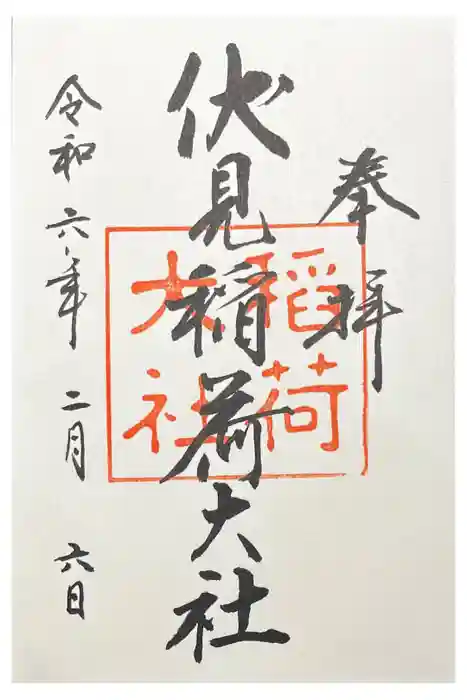 奉拝
伏見稲荷大社
稲荷
大社
令和六年二月六日